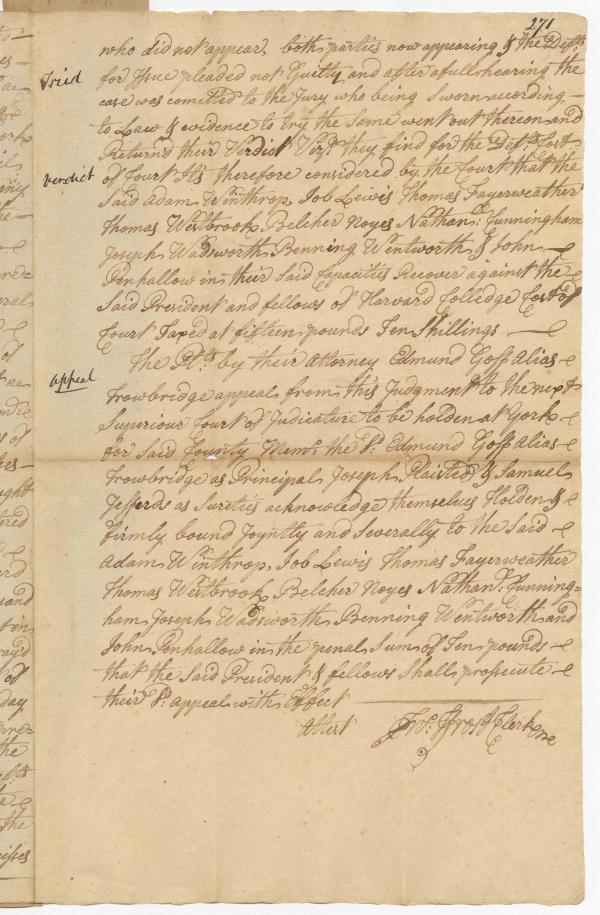 271
who did not appear, both parties now appearing & the Defts.
Tried
for Issue pleaded not Guilty, and after a full hearing the
case was comitted to the Jury who being Sworn according
to Law & evidence to try the same went out thereon and
Return'd their Verdict Vizt. they find for the Defts. Cost
Verdict
of Court Its therefore considered by the Court that the
Said Adam Winthrop, Job Lewis Thomas Fayerweather
Thomas Westbrook, Belcher Noyes Nathanl. Cunningham
Joseph Wadsworth Benning Wentworth & John
Penhallow in their Said Capacities Recover against the
Said President and fellows of Harvard Colledge Cost of
Court Taxed at fifteen pounds Ten Shillings
The Plts. by their Attorney Edmund Goff Alias
Appeal
Trowbridge appeal from this Judgment to the next
Superiour Court of Judicature to be holden at York
for Said County Memo. the Sd. Edmund Goff Alias
Trowbridge as Principal Joseph Plaisted & Samuel
Jefferds as Sureties acknowledge themselves Holden &
firmly bound Joyntly and Severally to the Said
Adam Winthrop, Job Lewis Thomas Fayerweather
Thomas Westbrook, Belcher Noyes Nathanl. Cunning=
ham Joseph Wadsworth Benning Wentworth and
John Penhallow in the penal Sum of Ten pounds
that the Said President & fellows Shall prosecute
their Sd. appeal with Effect
Attest Jno. Frost Clerk